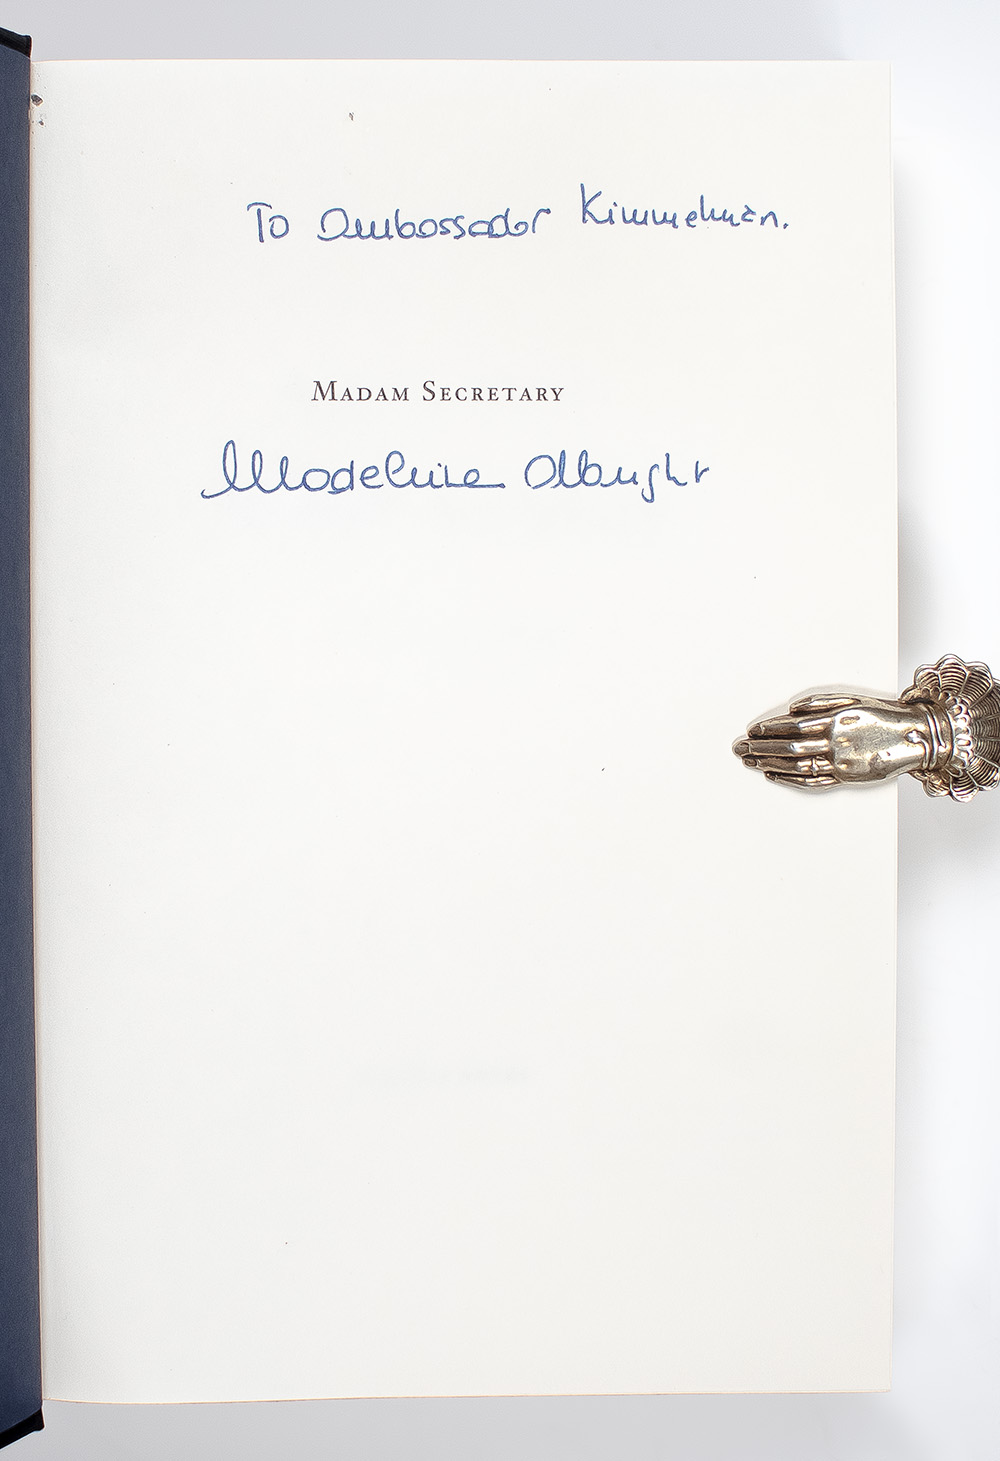 To Ambassador Kimmelman.
MADAM SECRETARY
Madeleine Albright